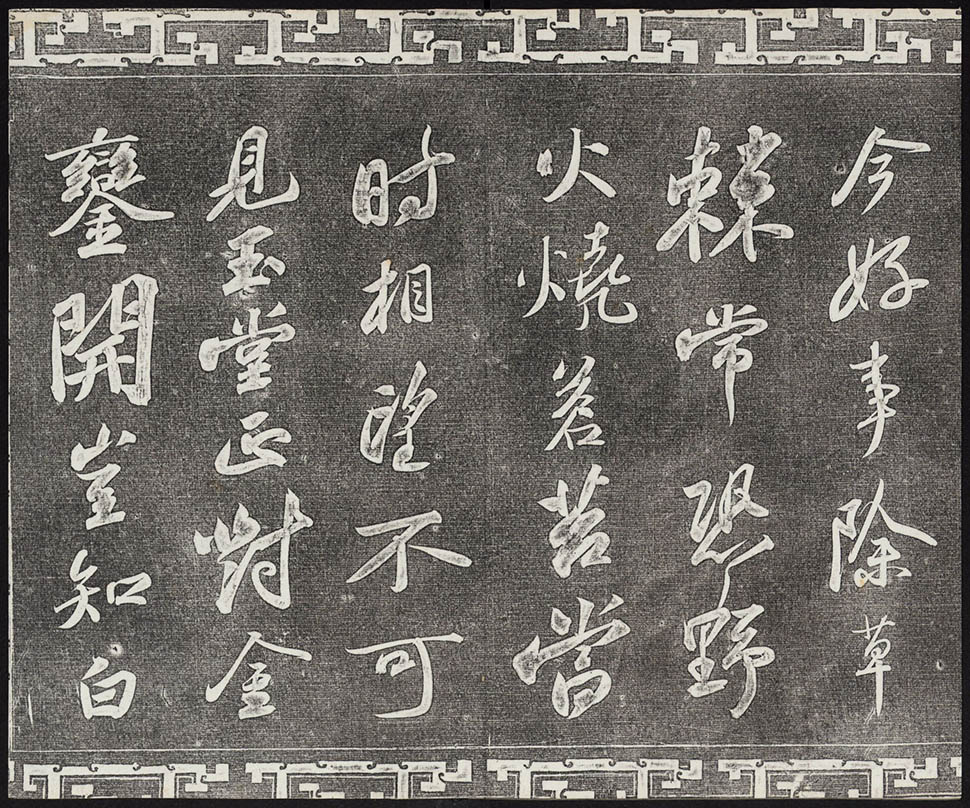 今好事除草
棘常恐野
火燒蒼苔當
時相望不可
見玉堂正對金
鑾開豈知白